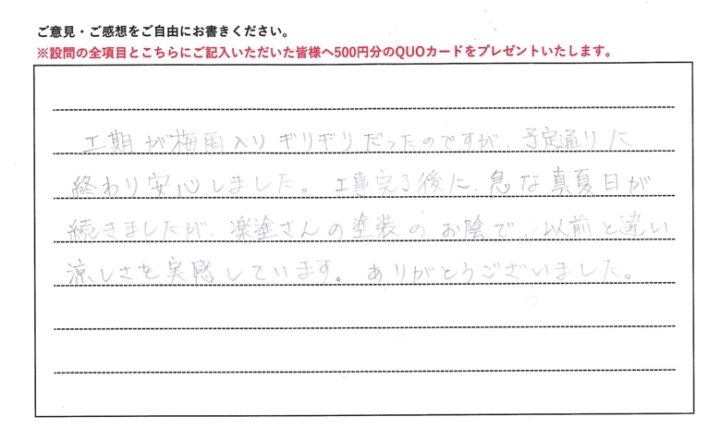 ご意見・ご感想をご自由にお書きください。
※設問の全項目とこちらにご記入いただいた皆様へ500円分のQUOカードをプレゼントいたします。
工期が梅雨入りギリギリだったのですが、予定通りに
終わり安心しました。工事完了後に、急な真夏日が
続きましたが、楽塗さんの塗装のお陰で、以前と違い
涼しさを実感しています。ありがとうございました。